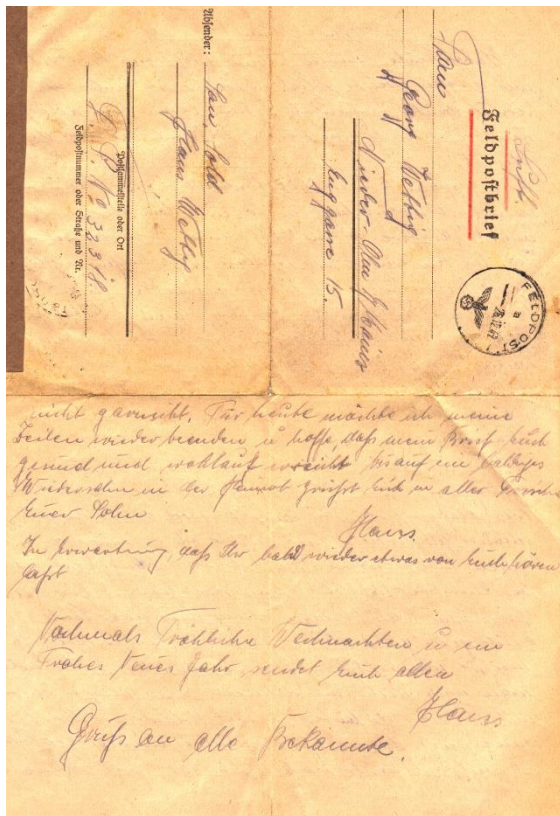 Luft
Feldpostbrief
FELDPOST
a
Georg Wettig
Nieder-Olm b/Mainz
15.
Absender: San. Sold
Hans Wettig
Postsammelstelle oder Ort
F. P. No 32391
Feldpostnummer oder Straße und Nr.
nicht Für heute möchte ich meine
Zeilen wieder beenden u hoffe daß mein Brief Euch
gesund und wohlauf erreicht bis auf ein baldiges
Wiedersehn in der Heimat grüßt Euch in aller
Euer Sohn
Hans
In Erwartung, daß Ihr bald wieder etwas von Euch hören
laßt
Nochmals Fröhliche Weihnachten u ein
Frohes Neues Jahr sendet Euch allen
Hans
Gruß an alle Bekannte.